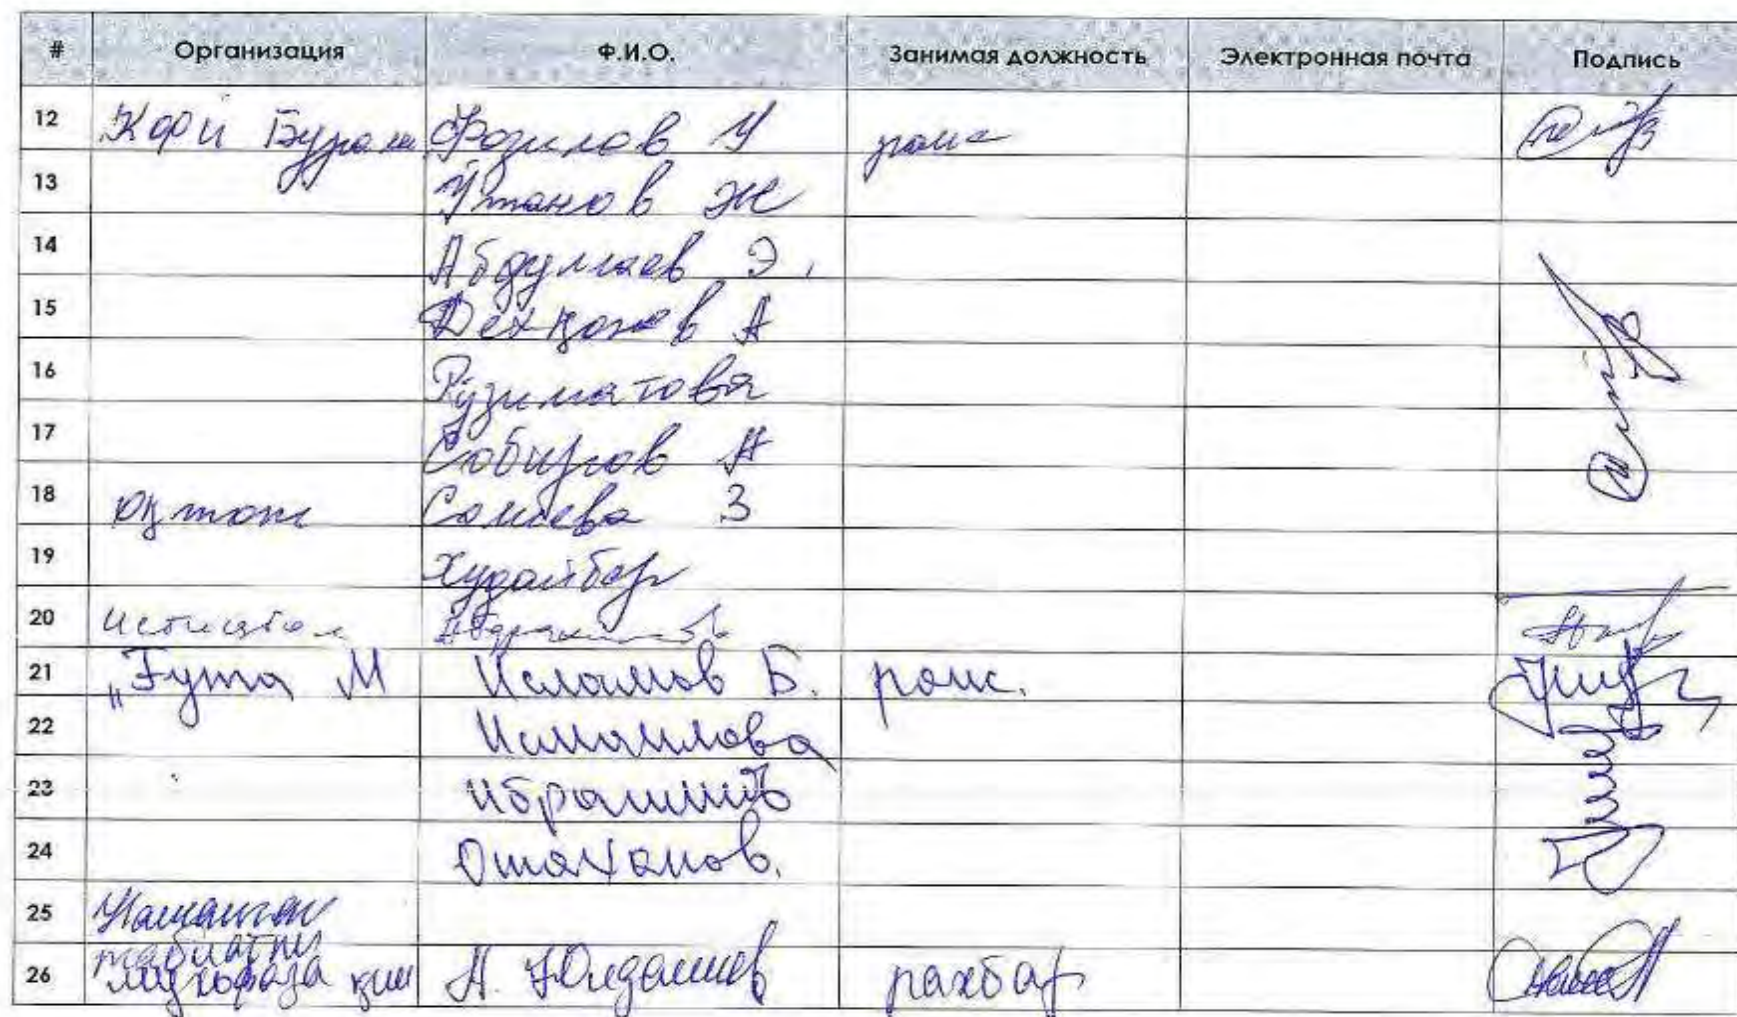 # Организация Ф.И.О. Занимая должность Электронная почта Подпись
12 Фозилов У раис
13 Утанов Ж
14 Абдуллаев Э.
15 Дехқонов А
16 Рузиматова
17 Собиров А
18 Солиева З
19 Худайбер
20
21 М Исламов Б. раис.
22 Исмаилова
23 Ибрагимов
24 Отахонов.
25 Наманган
табиатни
26 мухофаза қил А. Юлдашев рахбар